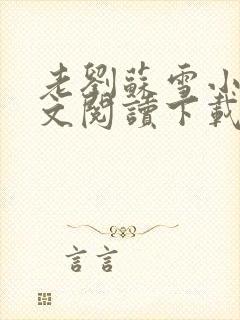 老劉蘇雪小
文閱讀下載
言言